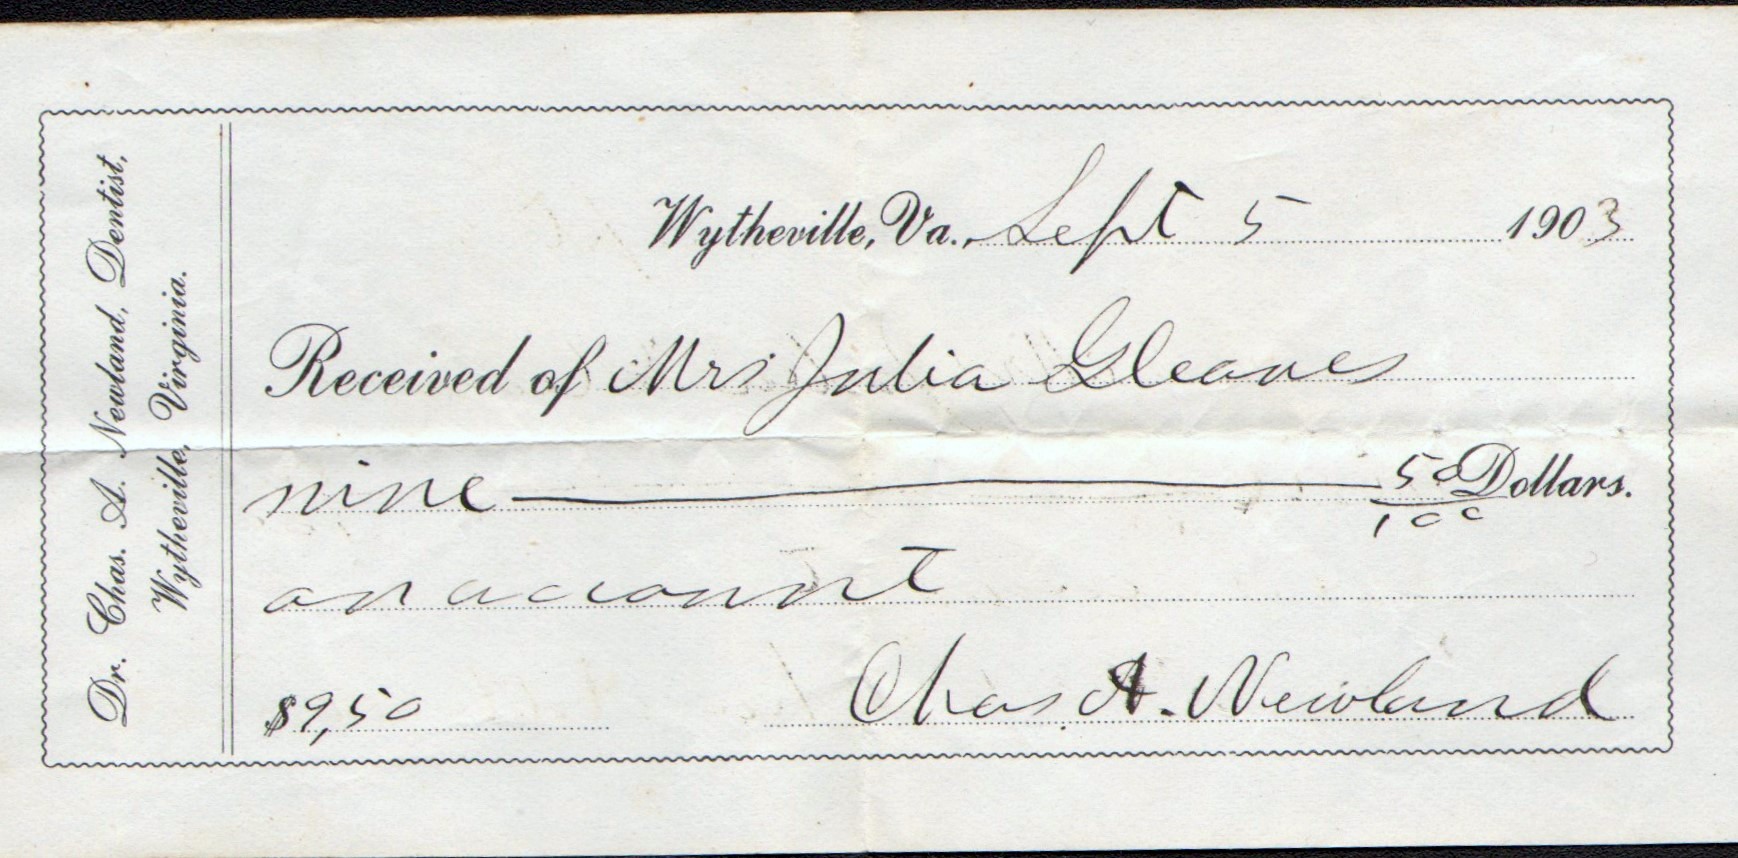 Dr. Chas. A. Newland, Dentist,
Wytheville, Virginia.
Wytheville, Va., Sept 5 1903
Received of Mrs Julia Gleaves
nine 50/100 Dollars.
on account
$9,50
Chas A. Newland